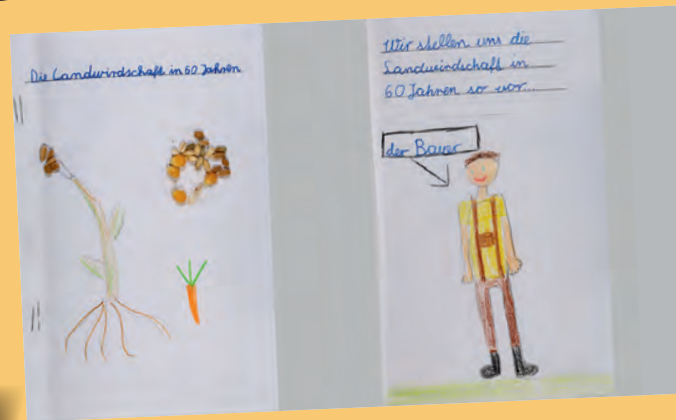 Die Landwirdschaft in 60 Jahren
Wir stellen uns die
Landwirdschaft in
60 Jahren so vor...
der Bauer